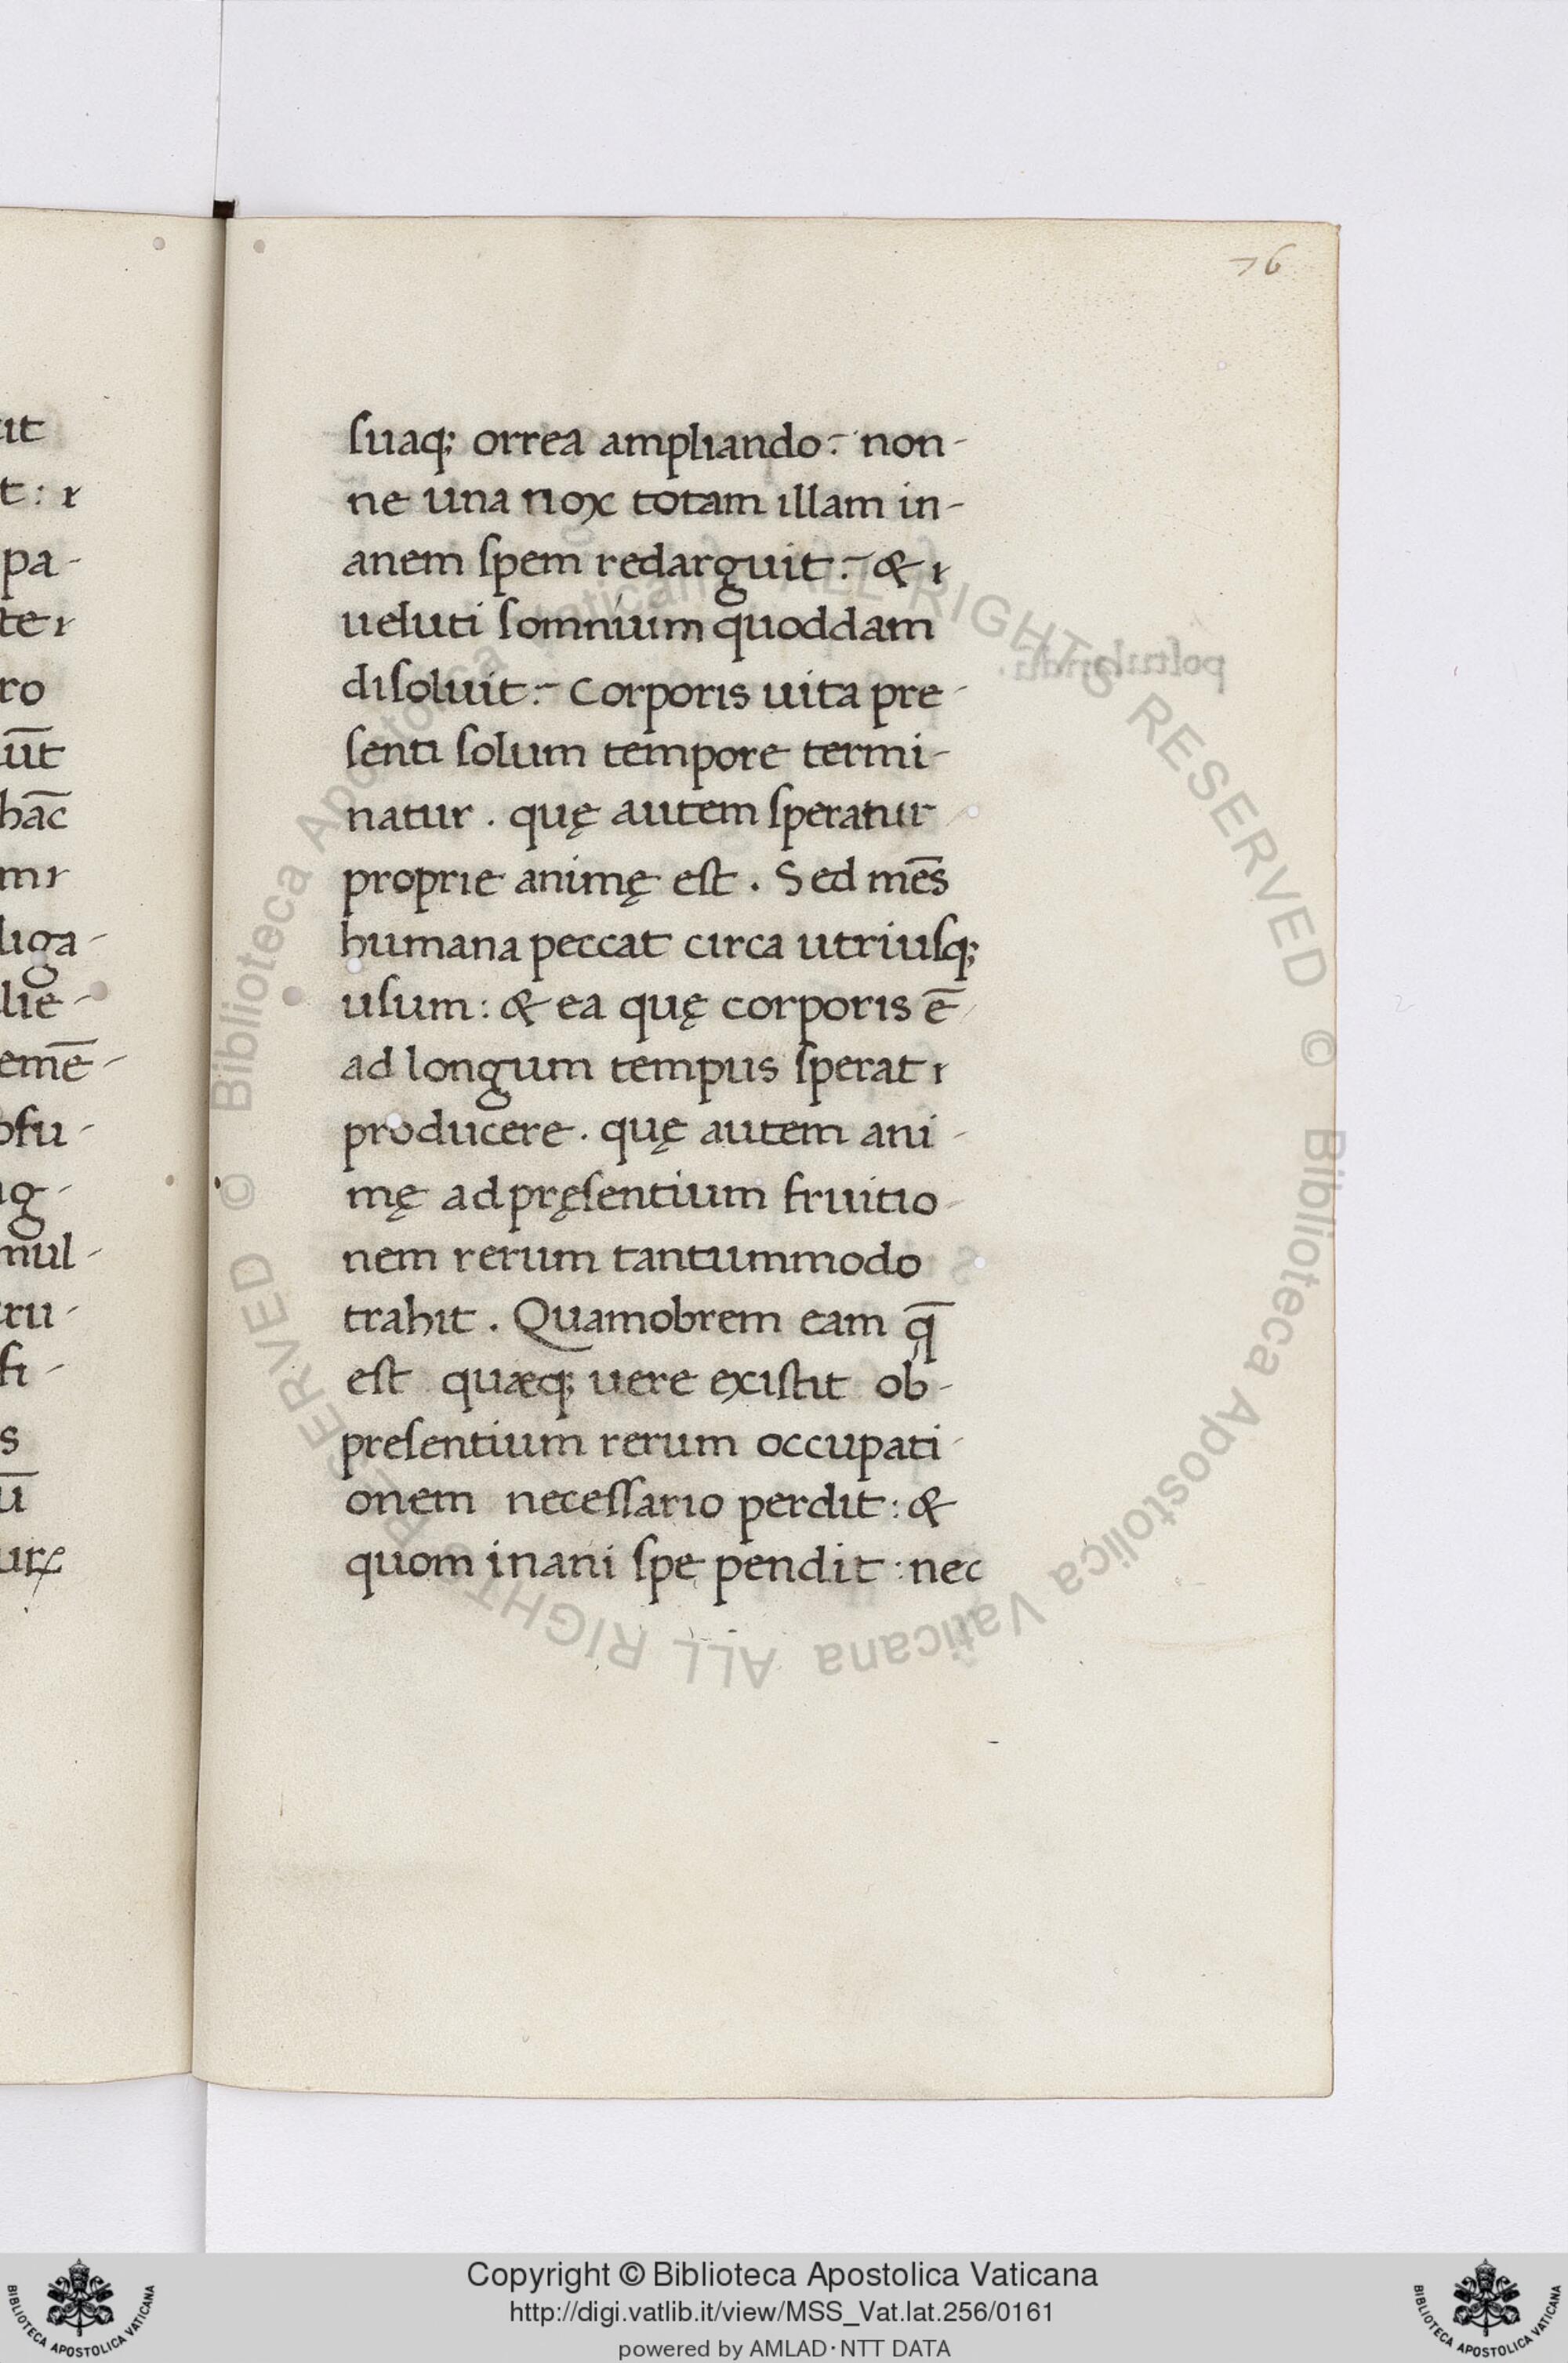 76
ſuaq; orrea ampliando: non-
ne una nox totam illam in-
anem ſpem redarguit: &
ueluti ſomnium quoddam
diſoluit: Corporis uita pre-
ſenti ſolum tempore termi-
natur. quę autem ſperatur
proprie animę eſt. Sed mēs
humana peccat circa utriuſq;
uſum: & ea quę corporis ē
ad longum tempus ſperat
producere. quę autem ani-
mę ad pręſentium fruitio-
nem rerum tantummodo
trahit. Quamobrem eam q̄
eſt quæq; uere exiſtit ob-
preſentium rerum occupati-
onem neceſſario perdit: &
quom inani ſpe pendit: nec
it
t:
pa-
te
ro
ūt
hāc
mi
liga-
lie-
emē-
ofu-
ug-
mul-
tru-
fi-
s
ū
© Biblioteca Apostolica Vaticana ALL RIGHTS RESERVED © Biblioteca Apostolica Vaticana ALL RIGHTS RESERVED
Copyright © Biblioteca Apostolica Vaticana
http://digi.vatlib.it/view/MSS_Vat.lat.256/0161
powered by AMLAD·NTT DATA
BIBLIOTECA APOSTOLICA VATICANA
BIBLIOTECA APOSTOLICA VATICANA